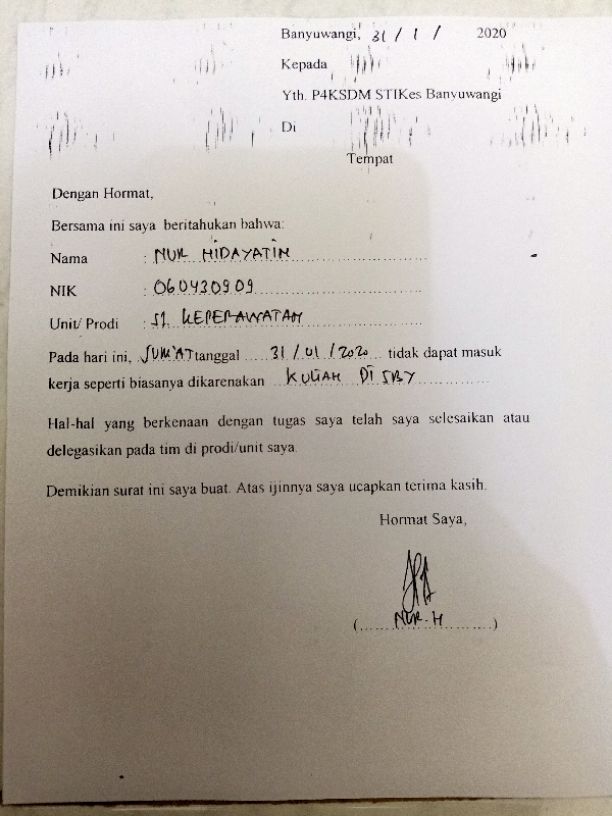 Banyuwangi, 31 / 1 / 2020
Kepada
Yth. P4KSDM STIKes Banyuwangi
Di
Tempat
Dengan Hormat,
Bersama ini saya beritahukan bahwa:
Nama : NUR HIDAYATIN
NIK : 060430909
Unit/ Prodi : S1 KEPERAWATAN
Pada hari ini, JUM'AT tanggal 31 / 01 / 2020 tidak dapat masuk
kerja seperti biasanya dikarenakan KULIAH DI SBY
Hal-hal yang berkenaan dengan tugas saya telah saya selesaikan atau
delegasikan pada tim di prodi/unit saya.
Demikian surat ini saya buat. Atas ijinnya saya ucapkan terima kasih.
Hormat Saya,
(NUR. H)